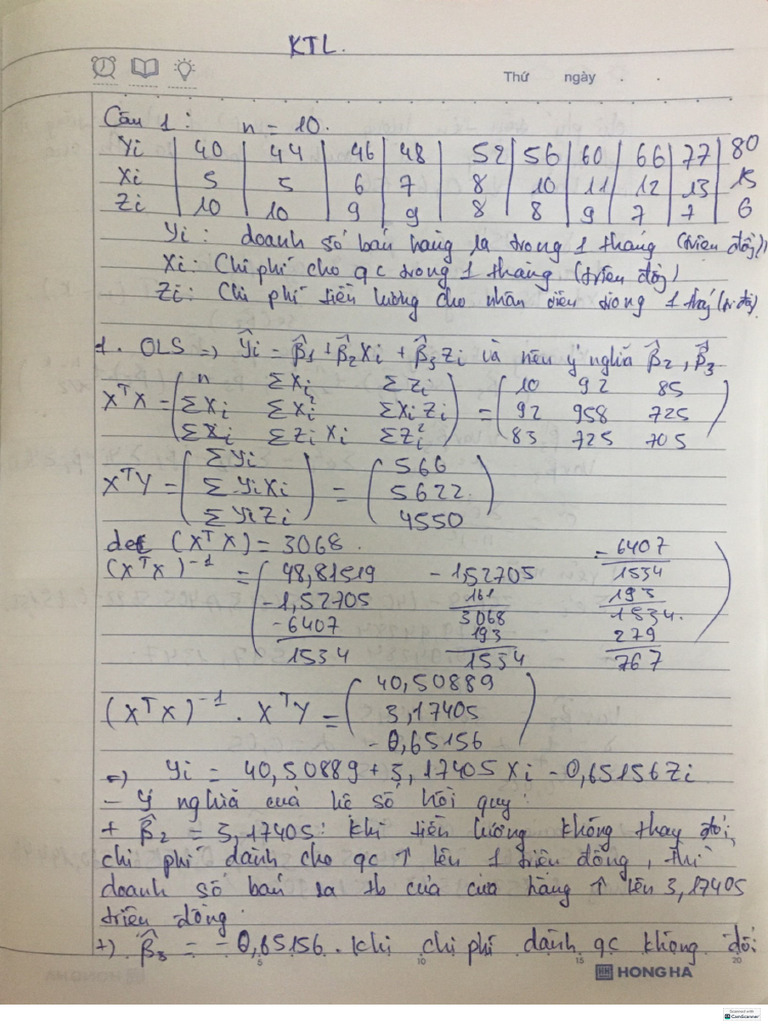 KTL.
Thứ ngày . .
Câu 1 : n = 10.
Yi | 40 | 44 | 46 | 48 | 52 | 56 | 60 | 66 | 77 | 80
Xi | 5 | 5 | 6 | 7 | 8 | 10 | 11 | 12 | 13 | 15
Zi | 10 | 10 | 9 | 9 | 8 | 8 | 9 | 7 | 7 | 6
Yi : doanh số bán hàng ra trong 1 tháng (triệu đồng)
Xi : Chi phí cho qc trong 1 tháng (triệu đồng)
Zi : Chi phí tiền lương cho nhân viên trong 1 tháng (tr đồ)
1. OLS => Ŷi = β̂1 + β̂2Xi + β̂3Zi và nêu ý nghĩa β̂2, β̂3
n ΣXi ΣZi 10 92 85
XᵀX = ΣXi ΣXi² ΣXiZi = 92 958 725
ΣXi ΣZiXi ΣZi² 83 725 705
ΣYi 566
XᵀY = ΣYiXi = 5622
ΣYiZi 4550
det (XᵀX) = 3068.
(XᵀX)⁻¹ = 48,81519 -152705 -6407/1534
-1,52705 161/3068 193/1534.
-6407/1534 193/1534 279/767
40,50889
(XᵀX)⁻¹. XᵀY = 3,17405
-0,65156
=) Yi = 40,50889 + 3,17405 Xi - 0,65156Zi
- Ý nghĩa của hệ số hồi quy:
+ β̂2 = 3,17405: Khi tiền lương không thay đổi,
chi phí dành cho qc ↑ lên 1 triệu đồng, thì
doanh số bán ra tb của cửa hàng ↑ lên 3,17405
triệu đồng.
+) β̂3 = -0,65156. Khi chi phí dành qc không đổi
5 10 15 20
HONG HA
Scanned with
CamScanner